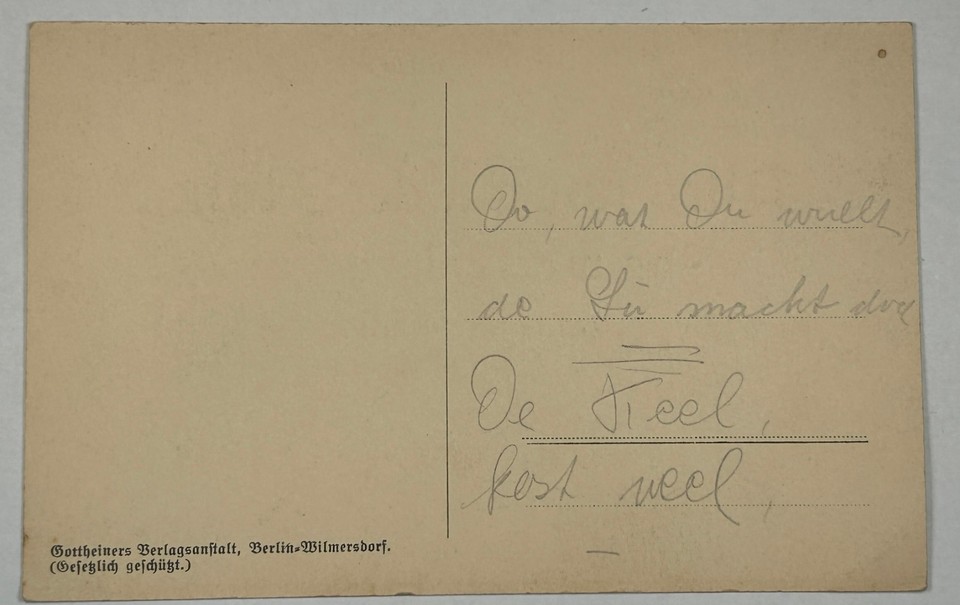 Do, wat Du wullt,
de Lü macht doch
De Keel,
kost veel,
Gottheiners Verlagsanstalt, Berlin-Wilmersdorf.
(Gesetzlich geschützt.)